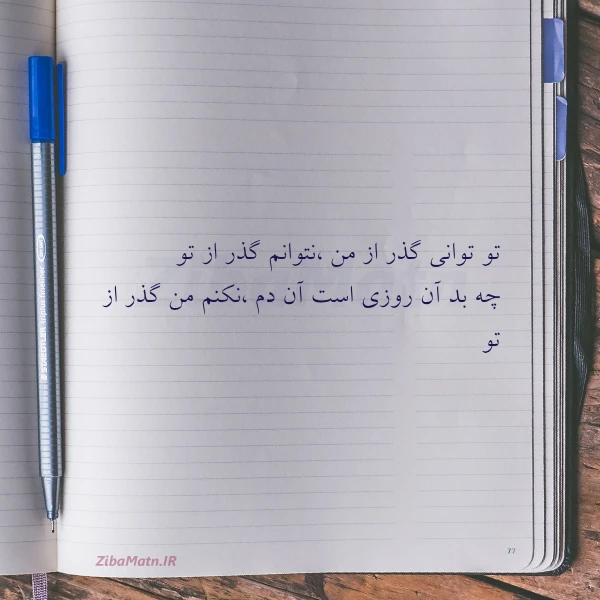 تو توانی گذر از من ،نتوانم گذر از تو
چه بد آن روزی است آن دم ،نکنم من گذر از
تو
77
ZibaMatn.IR